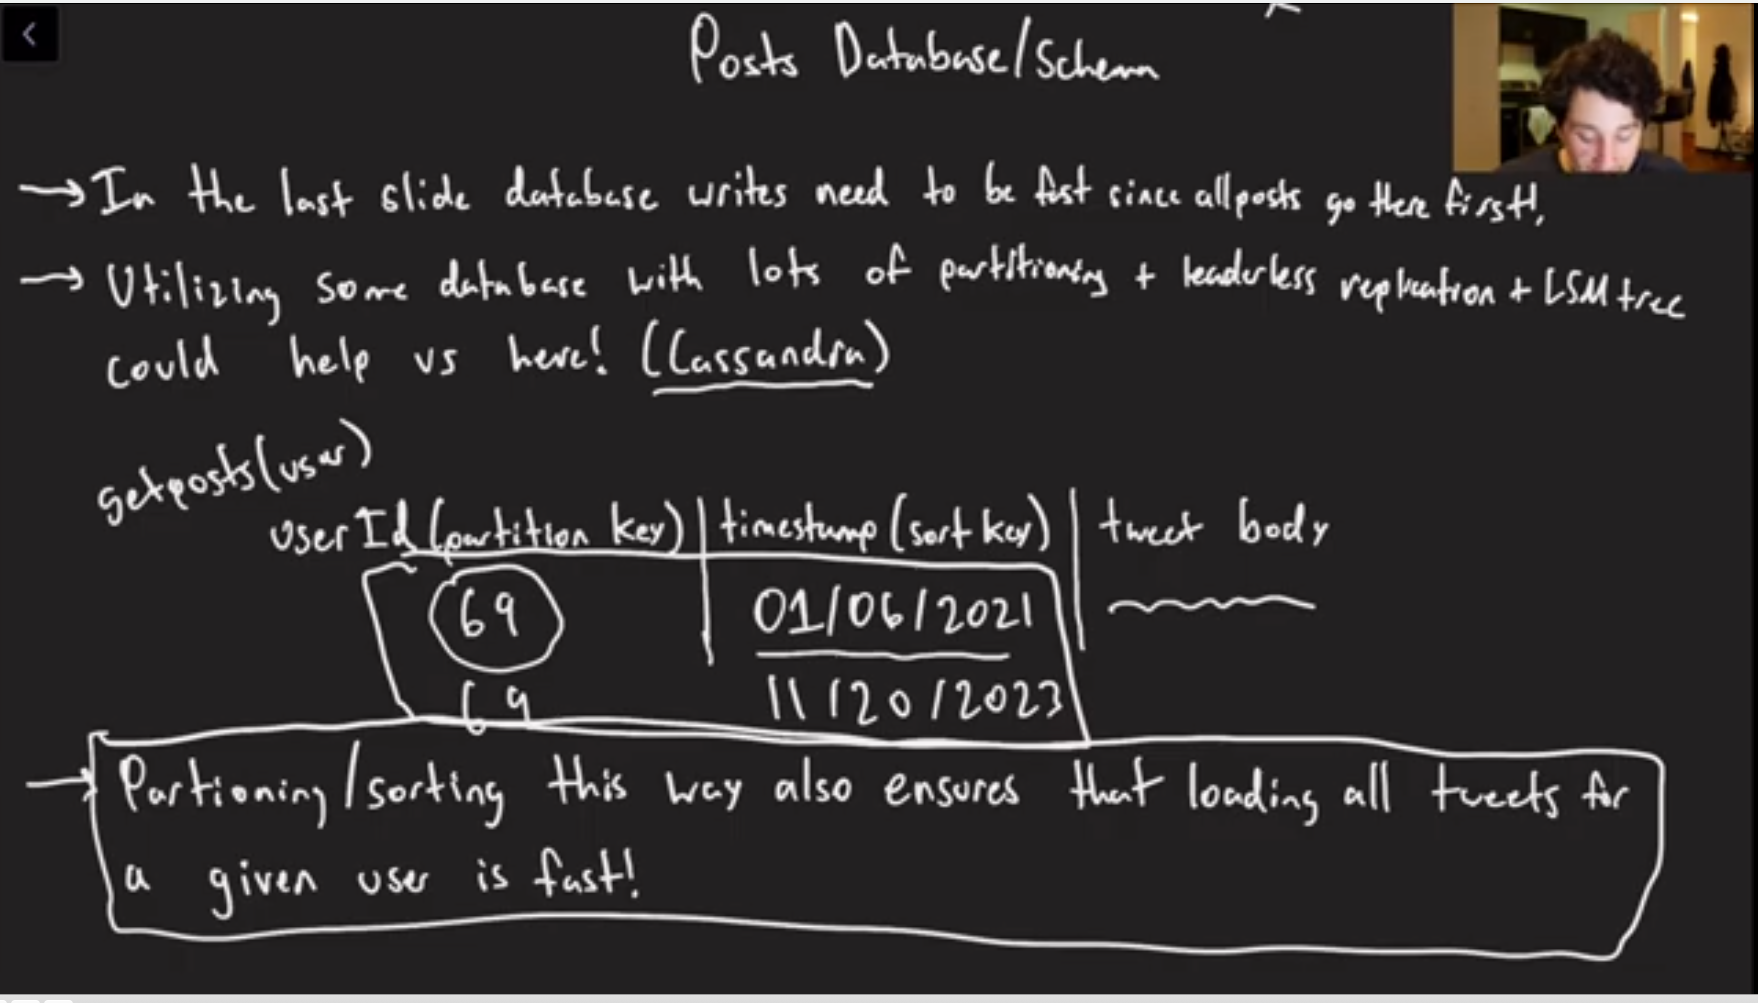 Posts Database/Schema
→ In the last slide database writes need to be fast since all posts go there first!,
→ Utilizing some database with lots of partitioning + leaderless replication + LSM tree
could help us here! (Cassandra)
getposts(user)
userId (partition key) | timestamp (sort key) | tweet body
69 01/06/2021
69 11/20/2023
→ Partioning/sorting this way also ensures that loading all tweets for
a given user is fast!